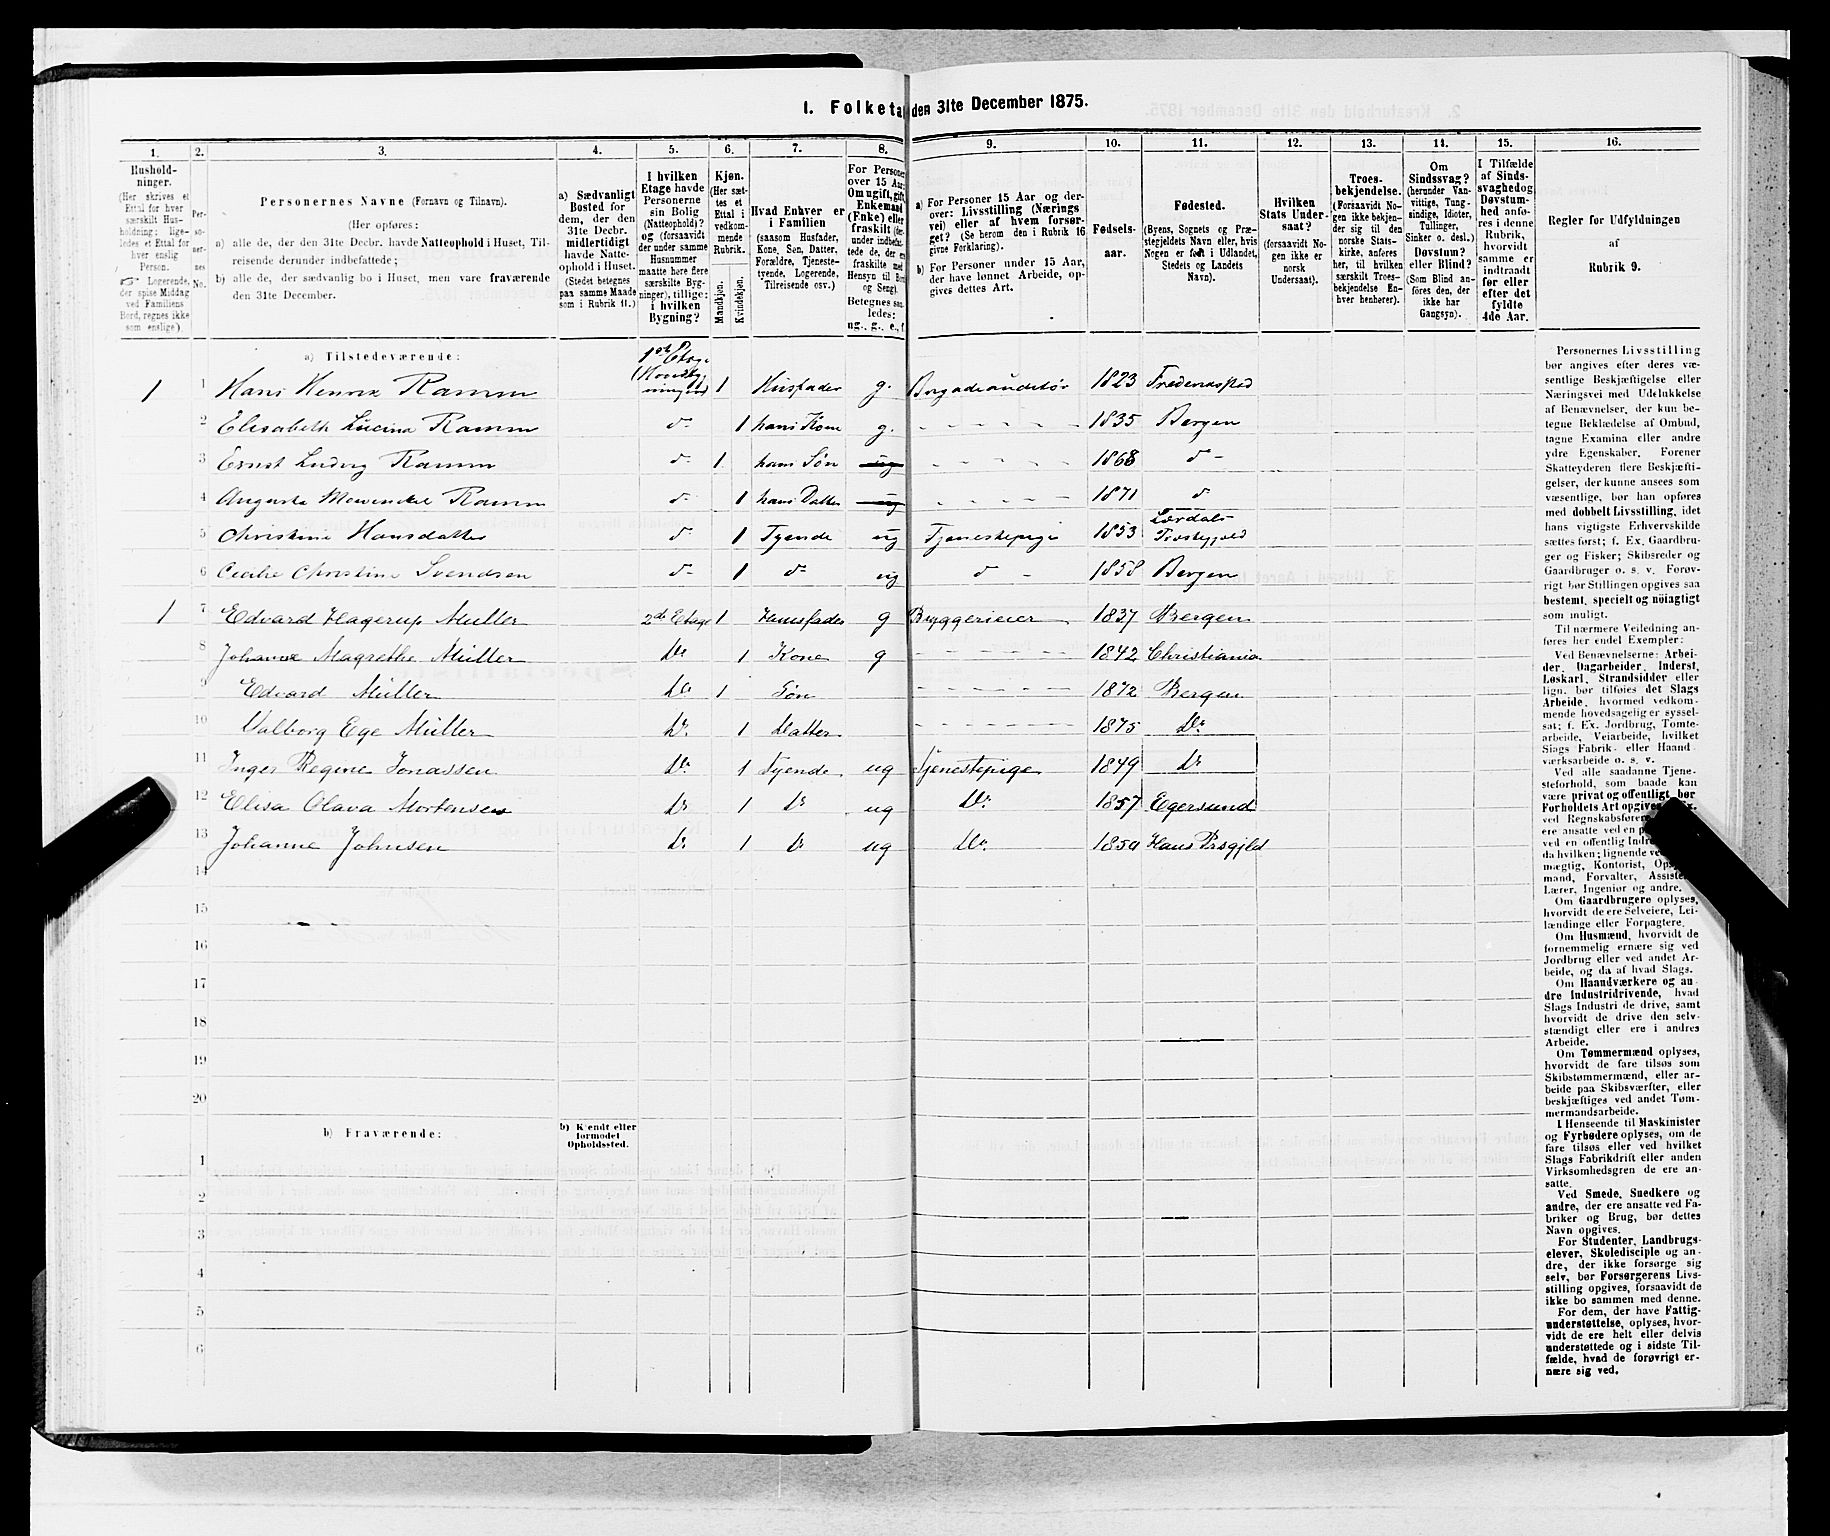 1. Folketæ den 31te December 1875.
1. 2. 3. 4. 5. 6. 7. 8. 9. 10. 11. 12. 13. 14. 15. 16.
Husholdninger.
(Her skrives et
Ettal for hver
særskilt Husholdning;
ligeledes et Ettal for
hver enslig
Person.
Logerende,
der spise Middag
ved Familiens
Bord, regnes ikke
som enslige).
Personernes No.
Personernes Navne (Fornavn og Tilnavn).
(Her opføres:
a) alle de, der den 31te Decbr. havde Natteophold i Huset, Tilreisende derunder indbefattede;
b) alle de, der sædvanlig bo i Huset, men vare fraværende
den 31te December.
a) Sædvanligt
Bosted for
dem, der den
31te Decbr.
midlertidigt
havde Natteophold
i Huset.
(Stedet betegnes
paa samme Maade
som i Rubrik 11.)
I hvilken
Etage havde
Personerne
sin Bolig
(Natteophold)?
og (forsaavidt
der under samme
Husnummer
maatte høre flere
særskilte Bygninger),
tillige:
i hvilken
Bygning?
Kjøn.
(Her sættes
et
Ettal i
vedkommende
Rubrik.
Mandkjøn.
Kvindekjøn.
Hvad Enhver er
i Familien
(saasom Husfader,
Kone, Søn, Datter,
Forældre, Tjenestetyende,
Logerende,
Tilreisende osv.)
For Personer
over 15 Aar:
Om ugift, gift,
Enkemand
(Enke) eller
fraskilt
Betegnes saaledes:
ug., g., e., f.
a) For Personer 15 Aar og derover:
Livsstilling (Næringsvei)
eller af hvem forsørget?
(Se herom den i Rubrik 16
givne Forklaring).
b) For Personer under 15 Aar,
der have lønnet Arbeide, opgives
dettes Art.
Fødselsaar.
Fødested.
(Byens, Sognets og Præstegjeldets
Navn eller, hvis
Nogen er født i Udlandet,
Stedets og Landets
Navn).
Hvilken
Stats Undersaat?
(forsaavidt Nogen
ikke er
norsk
Undersaat).
Troesbekjendelse.
(Forsaavidt Nogen
ikke bekjender
sig til den
norske Statskirke,
anføres
her, til hvilken
særskilt Troesbekjendelse
Enhver
henhører).
Om
Sindssvag?
(herunder Vanvittige,
Tungsindige,
Idioter,
Tullinger,
Sinker o. desl.)
Døvstum?
eller Blind?
(Som Blind anføres
den, der
ikke har
Gangsyn).
I Tilfælde
af Sindssvaghed og
Døvstumhed
anføres
i denne
Rubrik,
hvorvidt
samme er
indtraadt
før eller
efter det
fyldte
4de Aar.
Regler for Udfyldningen
af
Rubrik 9.
a) Tilstedeværende:
1 1 Hans Henrik Ramm 1ste Etage 1 Husfader g. Brigadeauditør 1823 Frederikssted
2 Elisabeth Lucina Ramm do 1 hans Kone g. 1835 Bergen
3 Ernst Ludvig Ramm do 1 hans Søn ug 1868 do
4 Augusta Mowinckel Ramm do 1 hans Datter ug 1871 do
5 Christine Hansdatter do 1 Tyende ug Tjenestepige 1853 Lærdals Præstegjeld
6 Cecilie Christine Svendsen do 1 do ug do 1858 Bergen
1 7 Edvard Hagerup Müller 2de Etage 1 Huusfader g Bryggerieier 1837 Bergen
8 Johanne Magrethe Müller Do 1 Kone g 1842 Christiania
9 Edvard Müller Do 1 Søn 1872 Bergen
10 Valborg Ege Müller Do 1 Datter 1875 Do
11 Inger Regine Jonassen Do 1 Tyende ug Tjenestepige 1849 Do
12 Elisa Olava Mortensen Do 1 Do ug Do 1857 Egersund
13 Johanne Johnsen Do 1 Do ug Do 1850 Hans Prsgjld
14
15
16
17
18
19
20
b) Fraværende:
b) Kjendt eller
formodet
Opholdssted.
1
2
3
4
5
6
Personernes Livsstilling
bør angives efter deres væsentlige
Beskjæftigelse eller
Næringsvei med Udelukkelse
af Benævnelser, der kun betegne
Beklædelse af Ombud,
tagne Examina eller andre
ydre Egenskaber. Forener
Skatteyderen flere Beskjæftigelser,
der kunne ansees som
væsentlige, bør han opføres
med dobbelt Livsstilling, idet
hans vigtigste Erhvervskilde
sættes først; f. Ex. Gaardbruger
og Fisker; Skibsreder og
Gaardbruger o. s. v. Forøvrigt
bør Stillingen opgives saa
bestemt, specielt og nöiagtigt
som muligt.
Til nærmere Veiledning anføres
her endel Exempler:
Ved Benævnelserne: Arbeider,
Dagarbeider, Inderst,
Løskarl, Strandsidder eller
lign. bør tilføies det Slags
Arbeide, hvormed vedkommende
hovedsagelig er sysselsat;
f. Ex. Jordbrug, Tømtearbeide,
Veiarbeide, hvilket
Slags Fabrik- eller Haandværksarbeide
o. s. v.
Ved alle saadanne Tjenesteforhold,
som baade kan
være privat og offentligt, bør
Forholdets Art opgives
Om Gaardbrugere oplyses,
hvorvidt de ere Selveiere, Leilændinge
eller Forpagtere.
Om Husmænd, hvorvidt de
fornemmelig ernære sig ved
Jordbrug eller ved andet Arbeide,
og da af hvad Slags.
Om Haandværkere og andre
Industridrivende, hvad
Slags Industri de drive, samt
hvorvidt de drive den selvstændigt
eller ere i andres
Arbeide.
Om Tømmermænd oplyses,
hvorvidt de fare tilsøs som
Skibstømmermænd, eller arbeide
paa Skibsværfter, eller
beskjæftiges ved andet Tømmermandsarbeide.
I Henseende til Maskinister
og Fyrbødere oplyses, om de
fare tilsøs eller ved hvilket
Slags Fabrikdrift eller anden
Virksomhedsgren de ere ansatte.
Ved Smede, Snedkere og
andre, der ere ansatte ved Fabriker
og Brug, bør dettes
Navn opgives.
For Studenter, Landbrugselever,
Skoledisciple og andre,
der ikke forsørge sig
selv, bør Forsørgerens Livsstilling
opgives, forsaavidt de
ikke bo sammen med denne.
For dem, der have Fattigunderstøttelse,
oplyses, hvorvidt
de ere helt eller delvis
understøttede og i sidste Tilfælde,
hvad de forøvrigt ernære
sig ved.